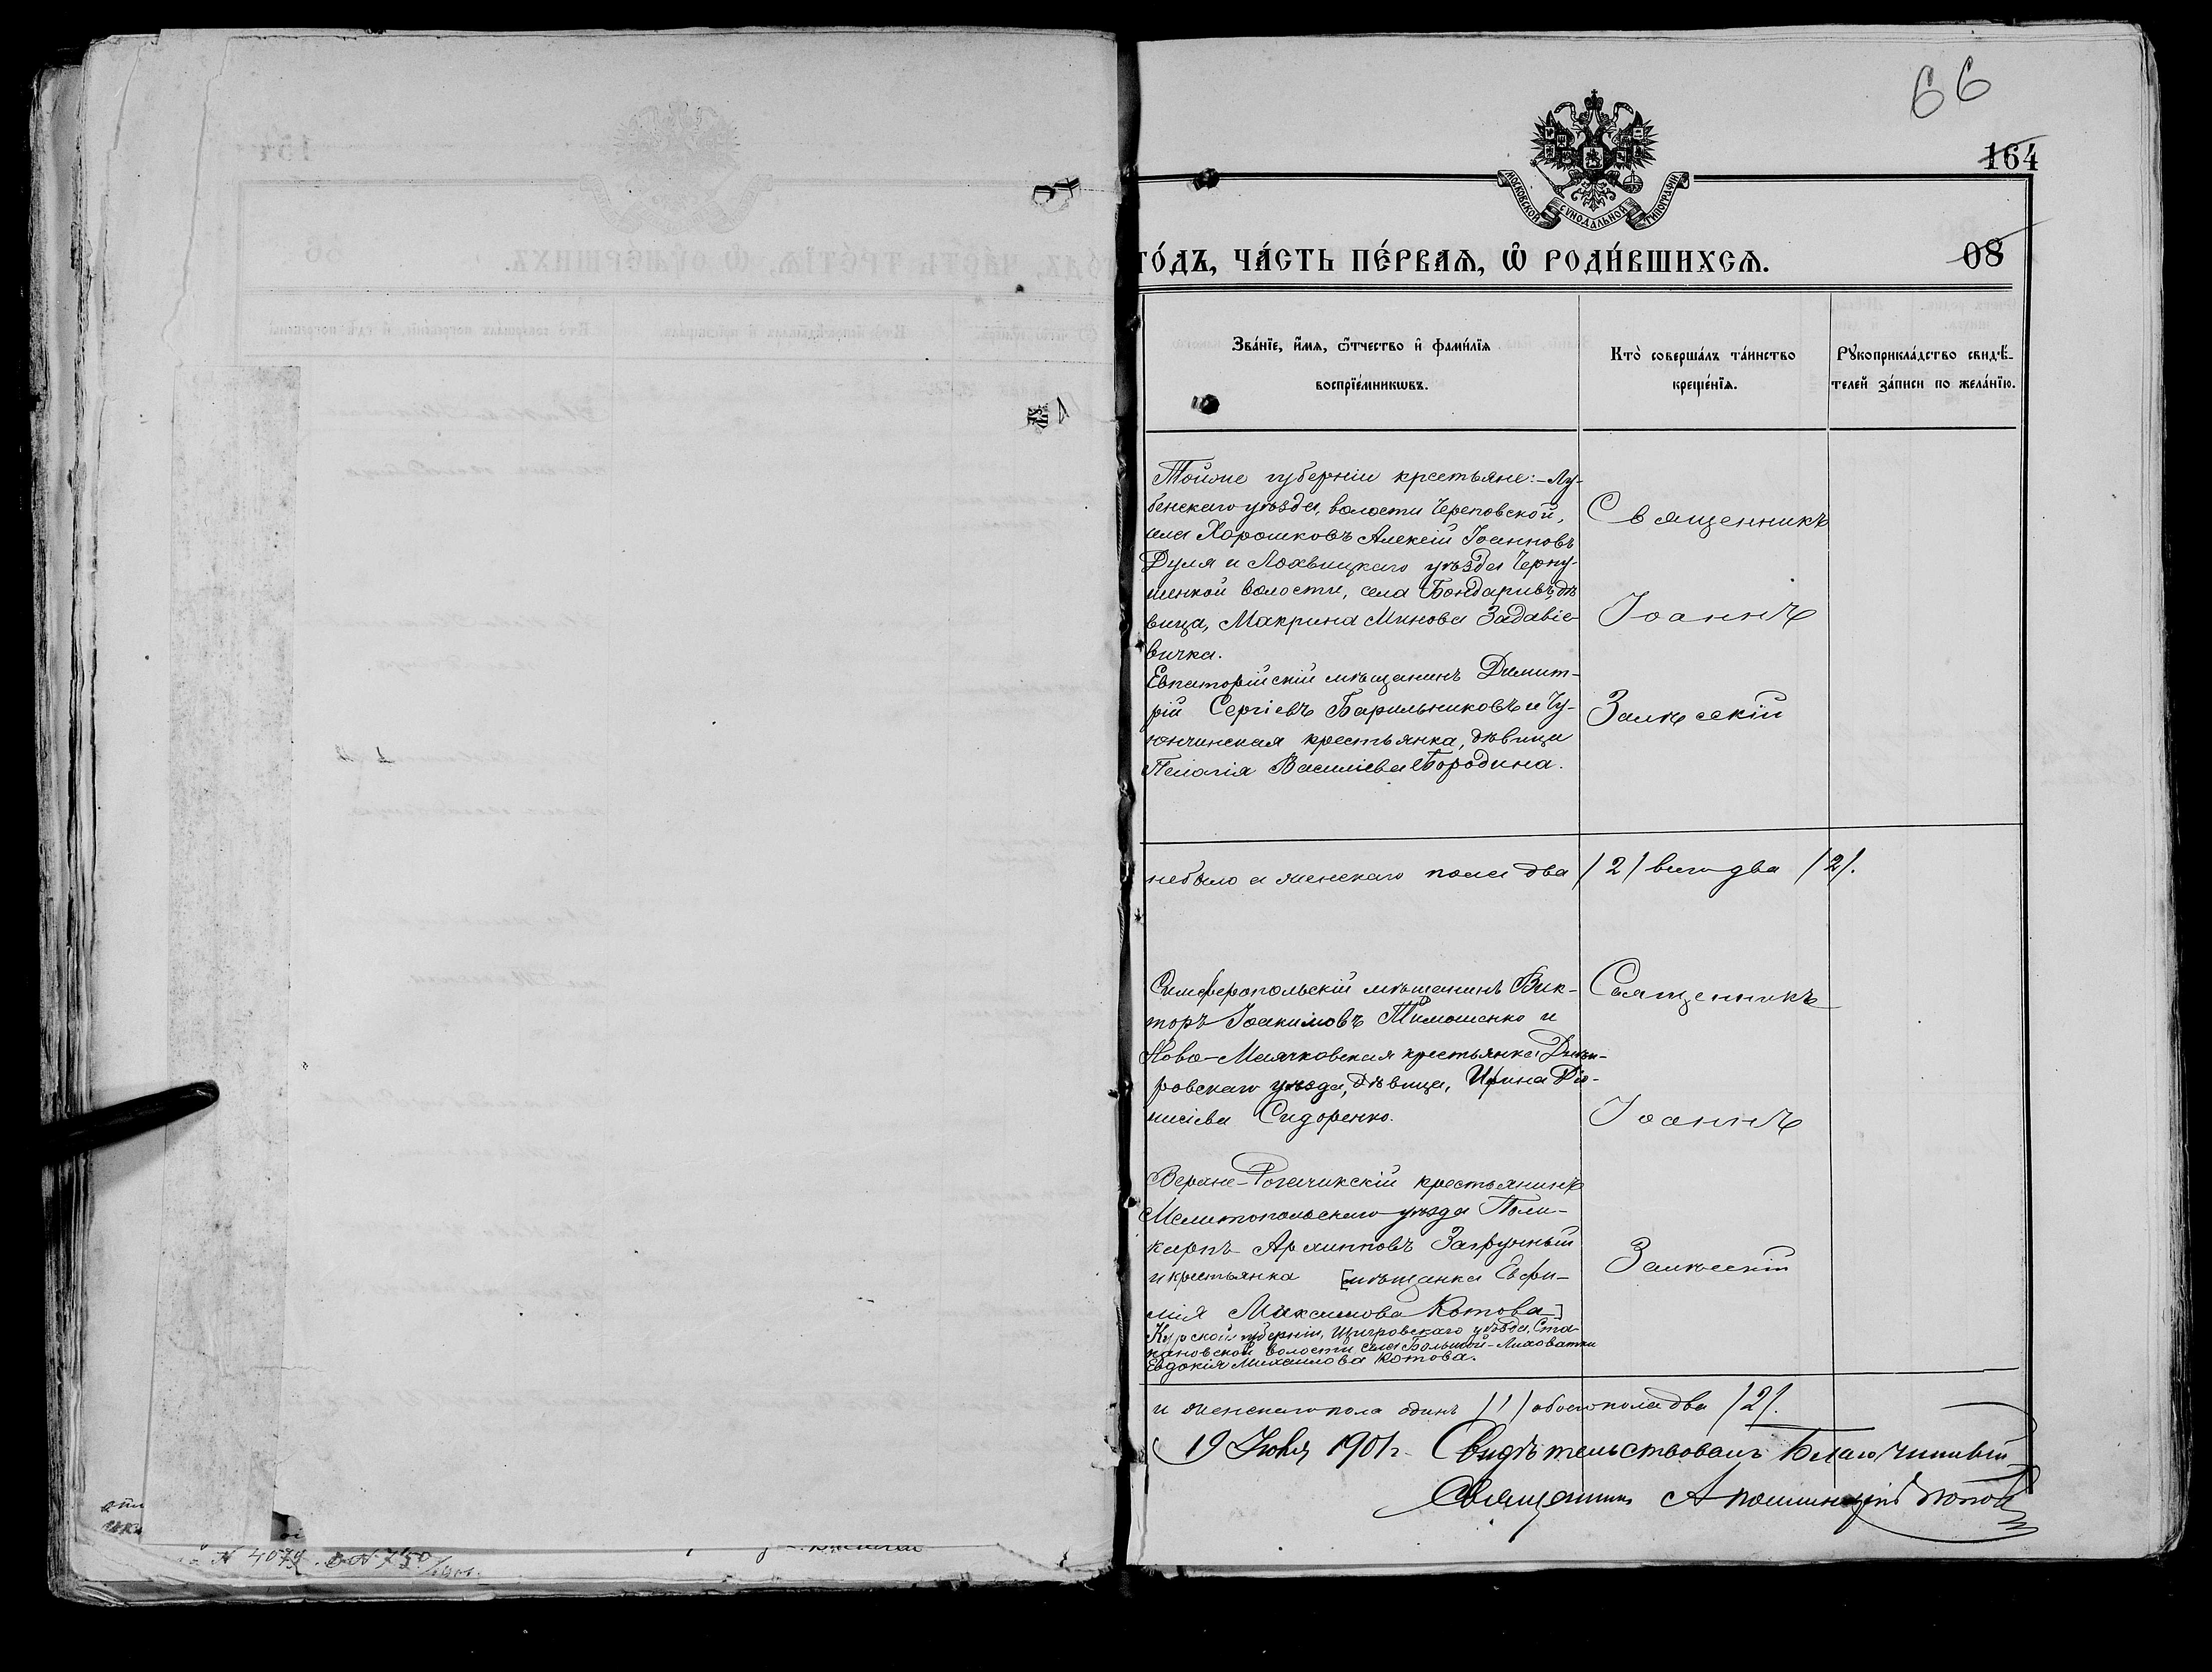 66
164
МОСКОВСКОЙ СѴНОДАЛЬНОЙ ТИПОГРАФІИ
ГО́ДЪ, ЧА́СТЬ ПЕ́РВАѦ, Ѿ РОДИ́ВШИХСѦ.
08
Зва́нїе, и҆́мѧ, ѻ҆́тчество и҆ фамѝлїѧ
воспрїе́мникѡвъ.
Кто̀ соверша́лъ та́инство
креще́нїѧ.
Рꙋкоприкла́дство свидѣ́-
телей за́писи по жела́нїю.
Тойже губерніи крестьяне:-Лу-
бенскаго уѣзда, волости Череповской,
села Хорошковъ Алексій Іоанновъ
Дуля и Лохвицкаго уѣзда
волости, села Бондаривъ, дѣ
вица, Макрина Минова Задавіе
вичка.
Евпаторійскій мѣщанинъ Димит-
рій Сергіевъ Барильниковъ и Чу-
юнчинская крестьянка, дѣвица
Пелагія Василіева Бородина.
Священникъ
Іоаннъ
Залѣсскій
небыло а женскаго пола два /2/ всего два /2/.
Симферопольскій мѣщанинъ Вик-
торъ Іоакимовъ Тимошенко и
Ново-Маячковская крестьянка Днѣп-
ровскаго уѣзда, дѣвица, Ирина Діо-
нисіева Сидоренко.
Священникъ
Іоаннъ
Верхне-Рогачикскій крестьянинъ
Мелитопольскаго уѣзда Поли-
карпъ Архипповъ Загрунный
и крестьянка [мѣщанка Евфи-
мія Максимова Котова]
Курской губерніи, Щигровскаго уѣзда, Ста-
кановской волости села Большой-Лиховатки
Евдокія Михаилова Котова.
Залѣсскій
и женскаго пола одинъ /1/ обоего пола два /2/.
19 Июля 1901 г. Свидѣтельствовалъ Благочинный
Священникъ Попов
N 4079 N 750/1901.